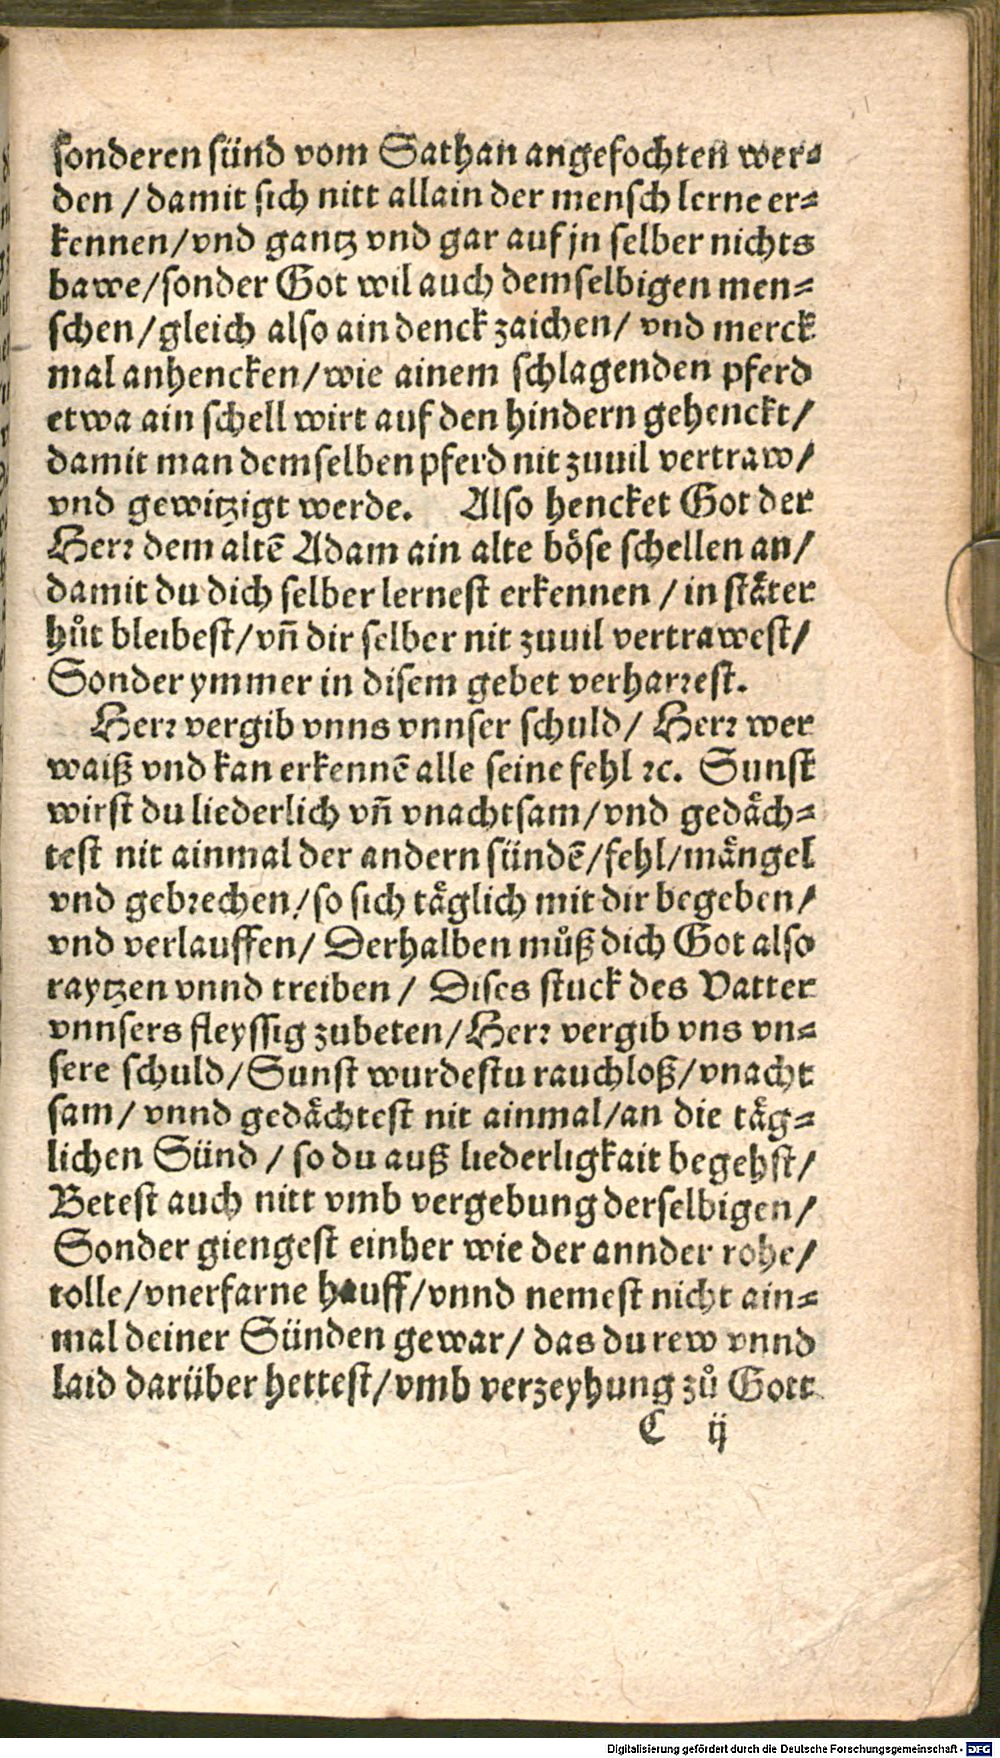 sonderen sünd vom Sathan angefochten wer⸗
den / damit sich nitt allain der mensch lerne er⸗
kennen/vnd gantz vnd gar auf jn selber nichts
bawe/sonder Got wil auch demselbigen men⸗
schen/gleich also ain denck zaichen/ vnd merck
mal anhencken/wie ainem schlagenden pferd
etwa ain schell wirt auf den hindern gehenckt/
damit man demselben pferd nit zuuil vertraw/
vnd gewitzigt werde. Also hencket Got der
Herr dem altē Adam ain alte böse schellen an/
damit du dich selber lernest erkennen / in stäter
hůt bleibest/vñ dir selber nit zuuil vertrawest/
Sonder ymmer in disem gebet verharrest.
Herr vergib vnns vnnser schuld/ Herr wer
waiß vnd kan erkennē alle seine fehl ꝛc. Sunst
wirst du liederlich vñ vnachtsam/vnd gedäch⸗
test nit ainmal der andern sündē/fehl/mängel
vnd gebrechen/so sich täglich mit dir begeben/
vnd verlauffen/ Derhalben můß dich Got also
raytzen vnnd treiben/ Dises stuck des Vatter
vnnsers fleyssig zubeten/Herr vergib vns vn⸗
sere schuld/Sunst wurdestu rauchloß/vnacht
sam/ vnnd gedächtest nit ainmal/an die täg⸗
lichen Sünd / so du auß liederligkait begehst/
Betest auch nitt vmb vergebung derselbigen/
Sonder giengest einher wie der annder rohe/
tolle/vnerfarne hauff/vnnd nemest nicht ain⸗
mal deiner Sünden gewar/ das du rew vnnd
laid darüber hettest/vmb verzeyhung zů Gott
C ij
Digitalisierung gefördert durch die Deutsche Forschungsgemeinschaft - DFG